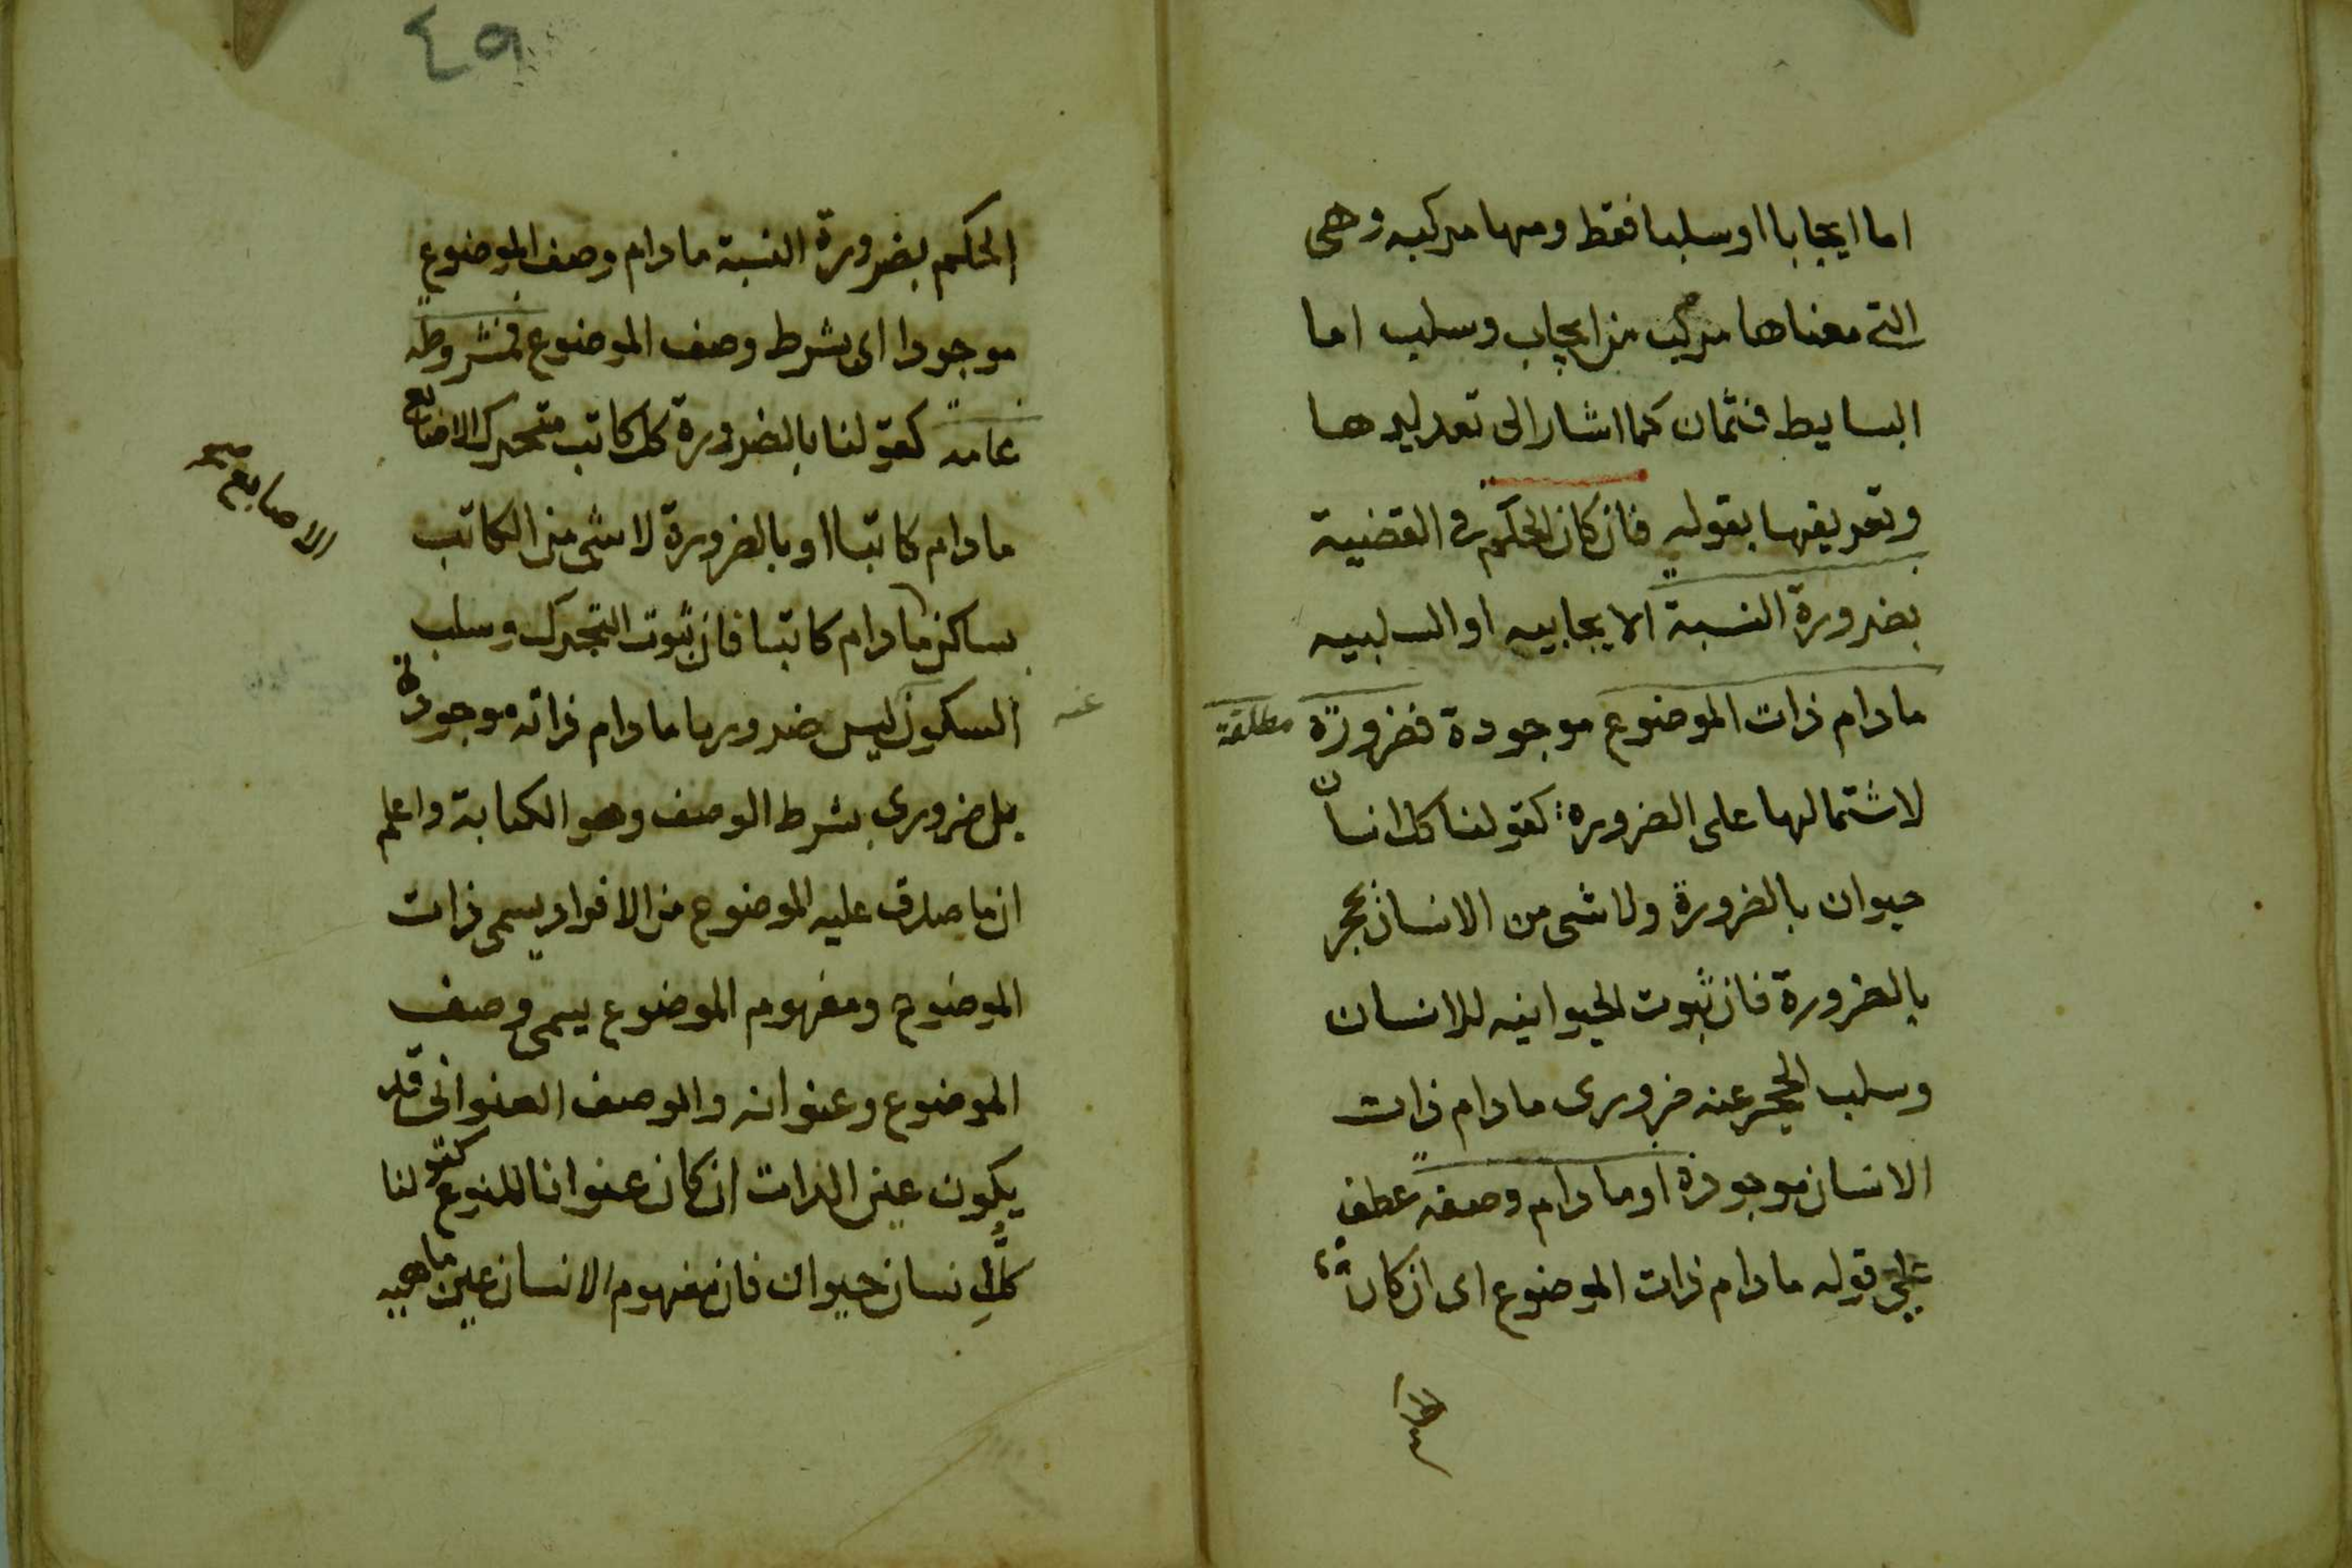 اما ايجابا او سلبا فقط ومنها مركبه وهى
التي معناها مركب من ايجاب وسلب اما
البسايط فثمان كما اشار الى تعديدها
وتعريفها بقوله فان كان الحكم في القضية
بضرورة النسبة الايجابيه او السلبيه
مادام ذات الموضوع موجودة فضرورة مطلقة
لاشتمالها على الضروره كقولنا كل انسان
حيوان بالضرورة ولا شى من الانسان بحجر
بالضرورة فان ثبوت الحيوانيه للانسان
وسلب الحجر عنه ضرورى مادام ذات
الانسان موجودة او مادام وصفه عطف
على قوله مادام ذات الموضوع اى ان كان
٤٩
الحكم بضرورة النسبة مادام وصف الموضوع
موجودا اى بشرط وصف الموضوع فمشروطه
عامه كقولنا بالضرورة كل كاتب متحرك الاصابع
الاصابع صح
مادام كاتبا او بالضرورة لا شى من الكاتب
بساكن مادام كاتبا فان ثبوت التحرك وسلب
السكون ليس ضروريا مادام ذاته موجودة
عنه
بل ضرورى بشرط الوصف وهو الكتابة واعلم
ان ما صدق عليه الموضوع من الافراد يسمى ذات
الموضوع ومفهوم الموضوع يسمى وصف
الموضوع وعنوانه والوصف العنوانى قد
يكون عين الذات ان كان عنوانا للنوع كقولنا
كل انسان حيوان فان مفهوم الانسان عين ماهيه